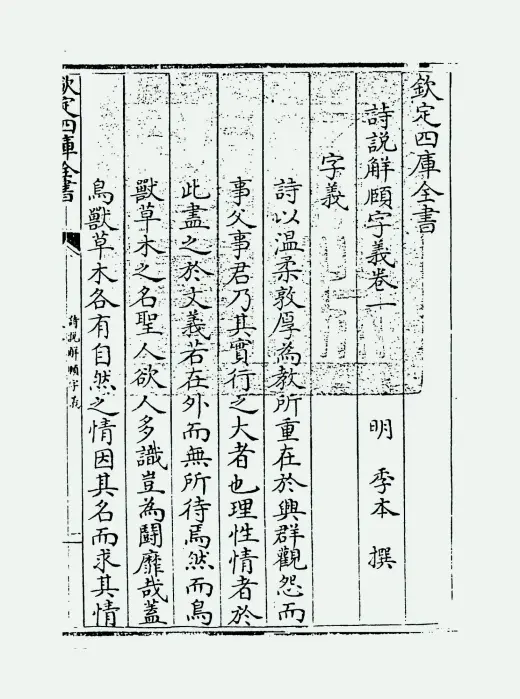 欽定四庫全書
詩說解頤字義卷一
明 季本 撰
字義
詩以温柔敦厚為教所重在於興群觀怨而
事父事君乃其實行之大者也理性情者於
此盡之於文義若在外而無所待焉然而鳥
獸草木之名聖人欲人多識豈為鬪靡哉蓋
鳥獸草木各有自然之情因其名而求其情
欽定四庫全書
詩說解頤字義
一